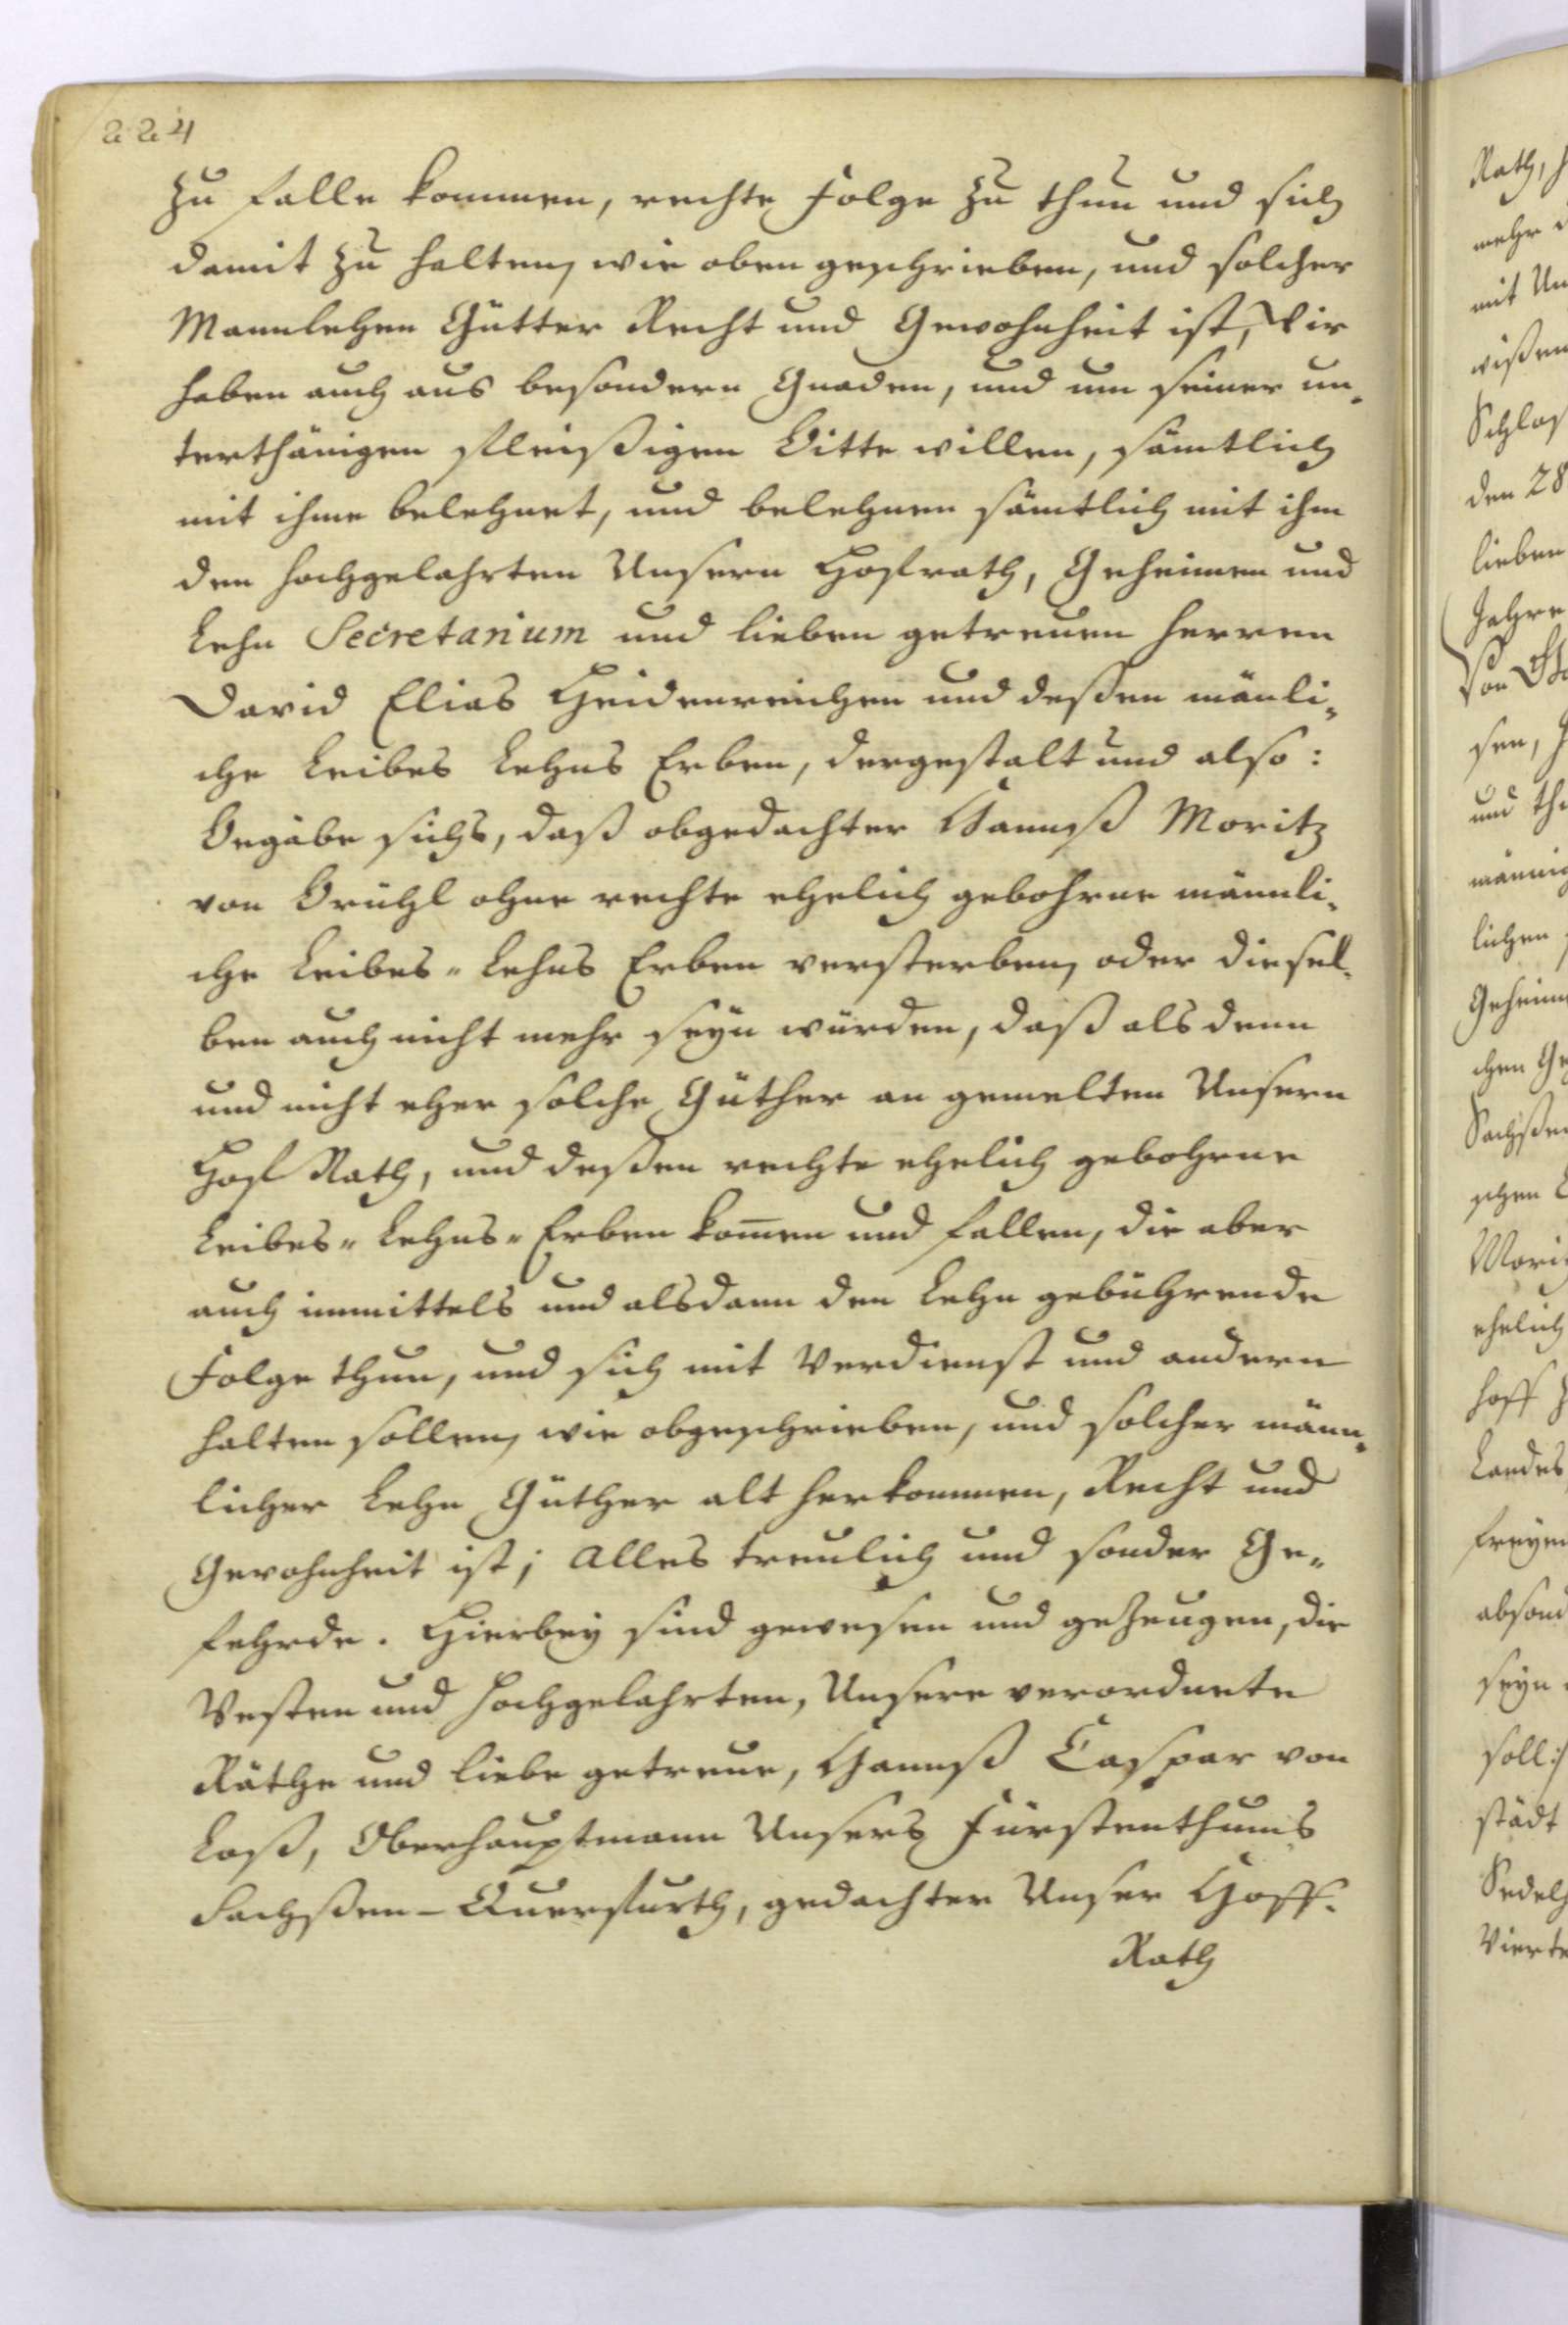 224
zu falle kommen, rechte Folge zu thun und sich
damit zu halten, wie oben geschrieben, und solcher
Mannlehen Gütter Recht und Gewohnheit ist, Wir
haben auch aus besondern Gnaden, und um seiner un„
terthänigen fleißigen Bitte willen, sämtlich
mit ihme belehnet, und belehnen sämtlich mit ihm
den hochgelahrten Unsern Hofrath, Geheimen und
Lehn Secretarium und lieben getreuen Herren
David Elias Heidenreichen und deßen mänli„
che Leibes Lehns Erben, dergestalt und also:
Begäbe sichs, daß obgedachter Hannß Moritz
von Brühl ohne rechte ehelich gebohrne männli„
che Leibes„ Lehns Erben versterben, oder diesel„
ben auch nicht mehr seyn würden, daß als denn
und nicht eher solche Güther an gemelten Unsern
Hof Rath, und deßen rechte ehelich gebohrne
Leibes„ Lehns„ Erben kom̄en und fallen, die aber
auch immittels und alsdann den Lehn gebührende
Folge thun, und sich mit Verdienst und andern
halten sollen, wie obgeschrieben, und solcher männ„
licher Lehn Güther alt herkommen, Recht und
Gewohnheit ist; Alles treulich und sonder Ge„
fehrde. Hierbey sind gewesen und gezeugen, die
Vesten und hochgelahrten, Unsere verordnete
Räthe und liebe getreue, Hannß Caspar von
Loß, Oberhauptmann Unsers Fürstenthums
Sachßen-Querfurth, gedachter Unser Hoff-
Rath
Rath,
mehr
mit
wißen
Schlos
den 28
lieben
Jahre
Von
sen,
und
männig
lichen
Geheim
chen
Sachßen
schen
Mori
ehelich
hoff
Landes
freyen
absond
seyn
soll
städt
Sedelh
Vierte